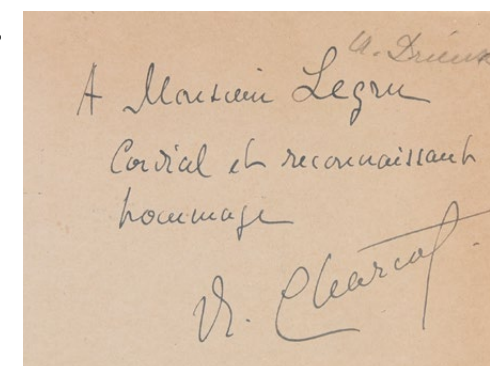 A Monsieur Legru
Cordial et reconnaissant
hommage
Charcot